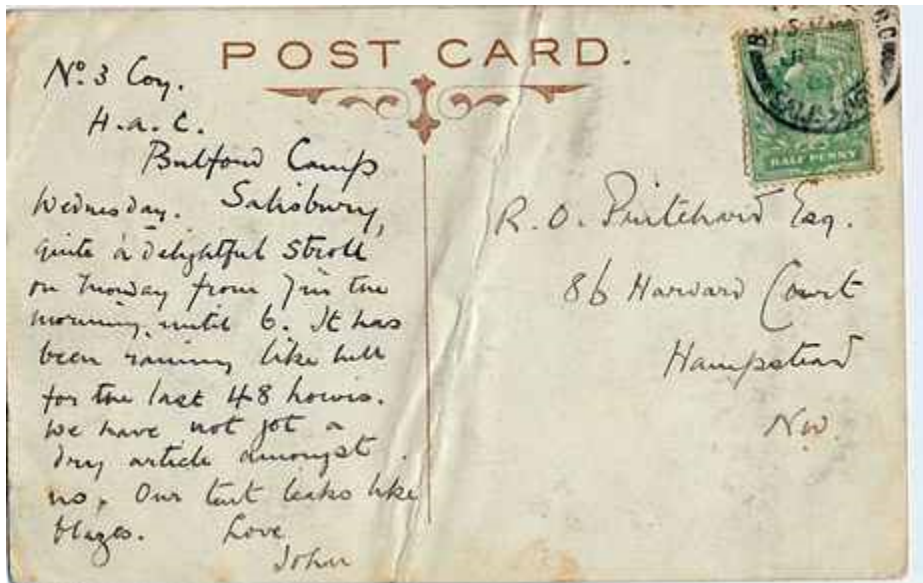 POST CARD.
No. 3 Coy.
H.A.C.
Bulford Camp
Wednesday. Salisbury,
quite a delightful stroll
on Monday from 7 in the
morning until 6. It has
been raining like hell
for the last 48 hours.
We have not got a
dry article amongst
us. Our tent leaks like
blazes. Love
John
R. O. Pritchard Esq.
86 Harvard Court
Hampstead
NW.
HALF PENNY